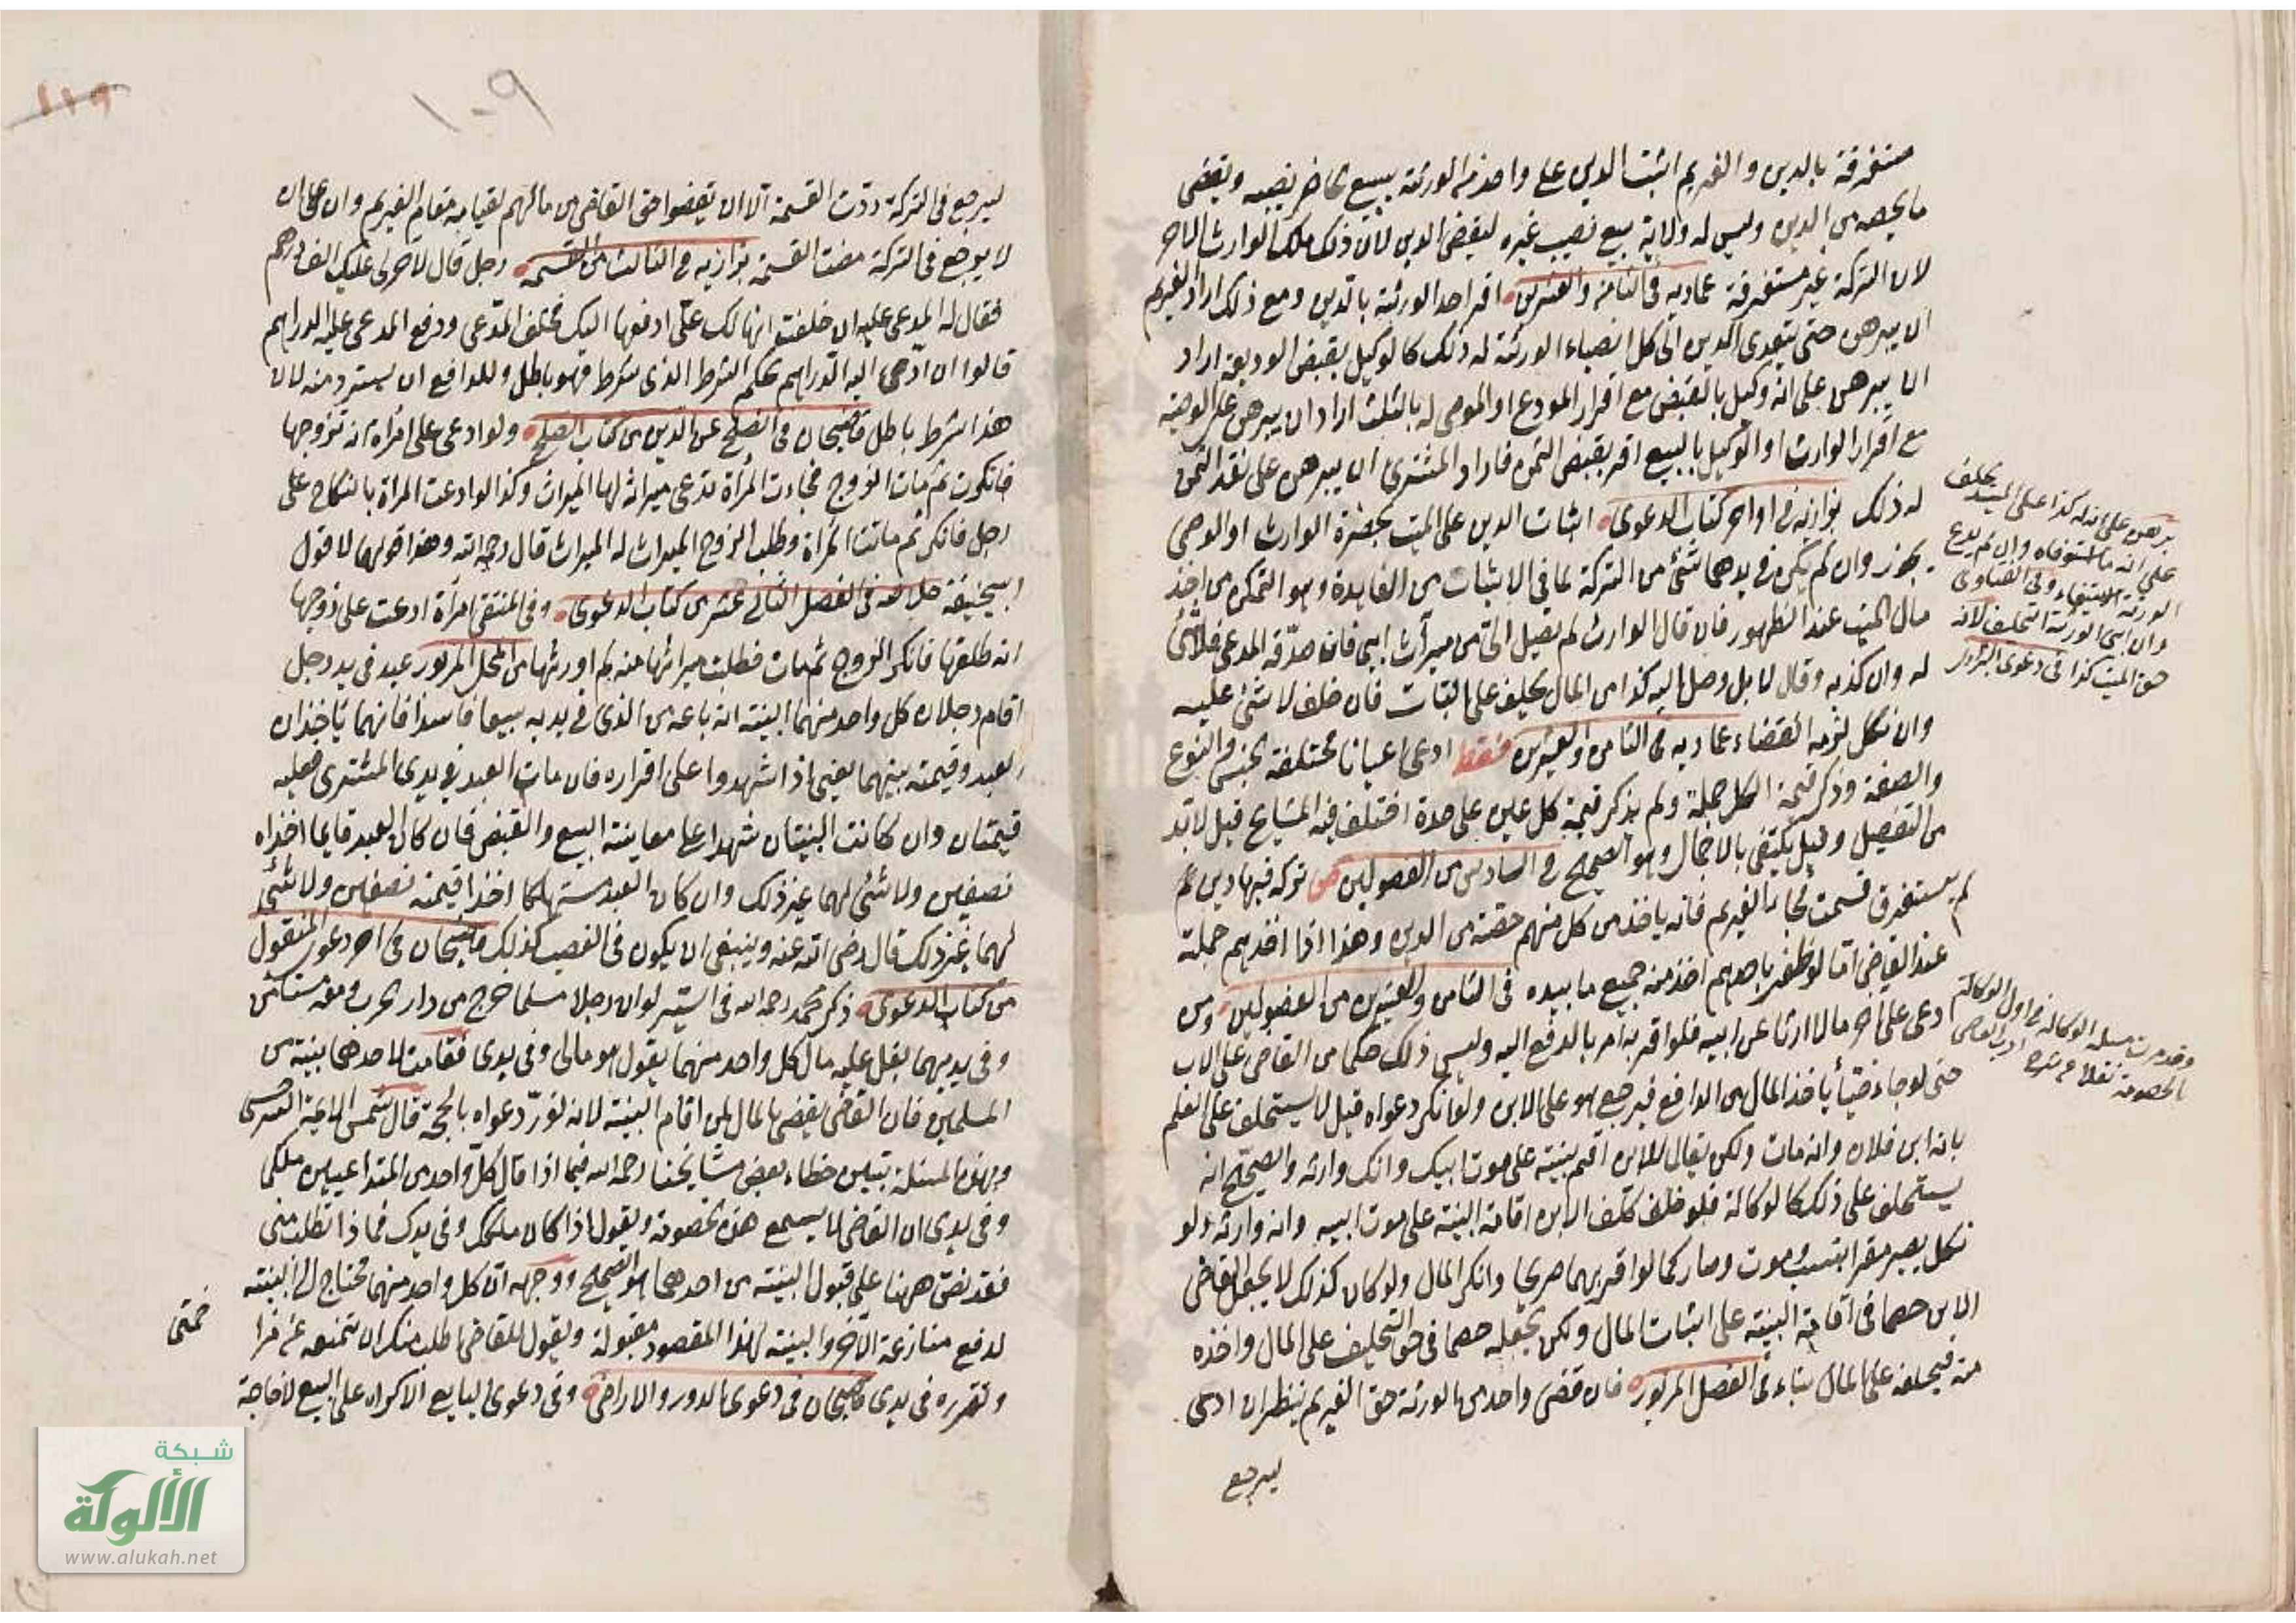 مستغرقة بالدين والغريم اثبت الدين على واحد من الورثة يبيع الحاضر نصيبه ويقضي
ما يخصه من الدين وليس له ولاية بيع نصيب غيره ليقضى الدين لان ذلك ملك الوارث الاخر
لان التركة غير مستغرقة عمادية في الثامن والعشرين اقر احد الورثة بالدين ومع ذلك اراد الغريم
ان يبرهن حتى يتعدى الدين الى كل انصباء الورثة له ذلك كالوكيل بقبض الوديعة اراد
ان يبرهن على انه وكيل بالقبض مع اقرار المودع او الموصى له بالثلث اراد ان يبرهن على الوصية
مع اقرار الوارث او الوكيل بالبيع اقر بقبض الثمن فاراد المشترى ان يبرهن على نقد الثمن
له ذلك بزازيه في اواخر كتاب الدعوى اثبات الدين على الميت بحضرة الوارث او الوصى
يجوز وان لم يكن في يدهما شئ من التركة لما في الاثبات من الفايدة وهو التمكن من اخذ
مال الميت عند الظهور فان قال الوارث لم تصل الىّ من ميراث ابى فان صدّقه المدعى فلا شئ
له وان كذبه وقال لا بل وصل اليه كذا من المال يحلف على البتات فان حلف لا شئ عليه
وان نكل لزمه القضاء عماديه في الثامن والعشرين فقط ادعى اعيانا مختلفة الجنس والنوع
والصفة وذكر قيمة الكل جملة ولم يذكر قيمة كل عين على حدة اختلف فيه المشايخ قيل لا بد
من التفصيل وقيل يكتفى بالاجمال وهو الصحيح في السادس من الفصولين تركة فيها دين لم
يستغرق قسمت فجاء الغريم فانه ياخذ من كل منهم حصته من الدين وهذا اذا اخذهم جملة
عند القاضى اما لو ظفر باحدهم اخذ منه جميع ما بيده في الثامن والعشرين من الفصولين ومن
دعى على آخر مالا ارثا عن ابيه فلو اقر به امر بالدفع اليه وليس ذلك حكما من القاضى على الاب
حتى لو جاء حيّا ياخذ المال من الدافع فيرجع هو على الابن ولو انكر دعواه قيل لا يستحلف على العلم
بانه ابن فلان وانه مات ولكن يقال للابن اقم بينة على موت ابيك وانك وارثه والصحيح انه
يستحلف على ذلك كالوكالة فلو حلف كلف الابن اقامة البينة على موت ابيه وانه وارثه ولو
نكل يصير مقرا بنسب وموت وصار كما لو اقر بهما صريحا وانكر المال ولو كان كذلك لا يجعل القاضى
الابن خصما في اقامة البينة على اثبات المال ولكن يجعله خصما في حق التحليف على المال واخذه
منه فيحلف على المال بتاء في الفصل المزبور فان قضى واحد من الورثة حق الغريم ينظر ان ادى
ليرجع
برهن على انه له كذا على الميت يحلف
على انه ما استوفاه وان لم يدع
الورثة الاستيفاء وفى الفتاوى
وان ابى الورثة التحليف لانه
حق الميت كذا في دعوى البزازية
وقد مرت مسئلة الوكالة في اول الوكالة
بالخصومة نقلا من شرح ادب القاضى
ليرجع في التركة ردّت القسمة الا ان يقضوا حق القاضى من مالهم لقيامه مقام الغريم وان كان
لا يرجع في التركة مضت القسمة بزازيه في الثالث من القسمة رجل قال لآخر لى عليك الف درهم
فقال له المدعى عليه ان حلفت انها لك علىّ ادفعها اليك فحلف المدّعى ودفع المدعى عليه الدراهم
قالوا ان ادى اليه الدراهم بحكم الشرط الذى شرط فهو باطل وللدافع ان يسترد منه لان
هذا شرط باطل قاضيخان في الصلح عن الدين من كتاب الصلح ولو ادعى على امرأة انه تزوجها
فانكرت ثم مات الزوج فجاءت المرأة تدعى ميراثه لها الميراث وكذا لو ادعت المرأة بالنكاح على
رجل فانكر ثم ماتت المرأة وطلب الزوج الميراث له الميراث قال رحمه الله وهذا قولهما لا قول
ابى حنيفة خلاصه في الفصل الثانى عشر من كتاب الدعوى وفى المنتقى امرأة ادعت على زوجها
انه طلقها فانكر الزوج ثم مات فطلبت ميراثها منه لم اورثها من المحل المزبور عبد في يد رجل
اقام رجلان كل واحد منهما البينة انه باعه من الذى في يديه بيعا فاسدا فانهما ياخذان
العبد وقيمته بينهما يعنى اذا شهدوا على اقراره فان مات العبد في يدى المشترى فعليه
قيمتان وان كانت البينتان شهدا على معاينة البيع والقبض فان كان العبد قايما اخذاه
نصفين ولا شئ لهما غير ذلك وان كان العبد مستهلكا اخذا قيمته نصفين ولا شئ
لهما غير ذلك قال رضى الله عنه وينبغى ان يكون في الغصب كذلك قاضيخان في اخر دعوى المنقول
من كتاب الدعوى ذكر محمد رحمه الله في السّير لو ان رجلا مسلما خرج من دار الحرب ومعه مستأمن
وفى يديهما بغل عليه مال كل واحد منهما يقول هو مالى وفى يدى فقامت لاحدهما بينة من
المسلمين فان القاضى يقضى بالمال لمن اقام البينة لانه نوّر دعواه بالحجة قال شمس الائمة السرخسى
وبهذه المسئلة تبين خطاء بعض مشايخنا رحمه الله فيما اذا قال كل واحد من المتداعيين ملكى
وفى يدى ان القاضى لا يسمع هذه الخصومة ويقول اذا كان ملكك وفى يدك فماذا تطلب منى
فقد نص ههنا على قبول البينة من احدهما هو الصحيح ووجهه ان كل واحد منهما محتاج الى البينة
لدفع منازعة الآخر والبينة لهذا المقصود مقبولة ويقول للقاضى اطلب منك ان تمنعه عن
وتقرره في يدى قاضيخان في دعوى الدور والاراضى وفى دعوى البايع الاكراه على البيع لا حاجة
شبكة
الألوكة
www.alukah.net